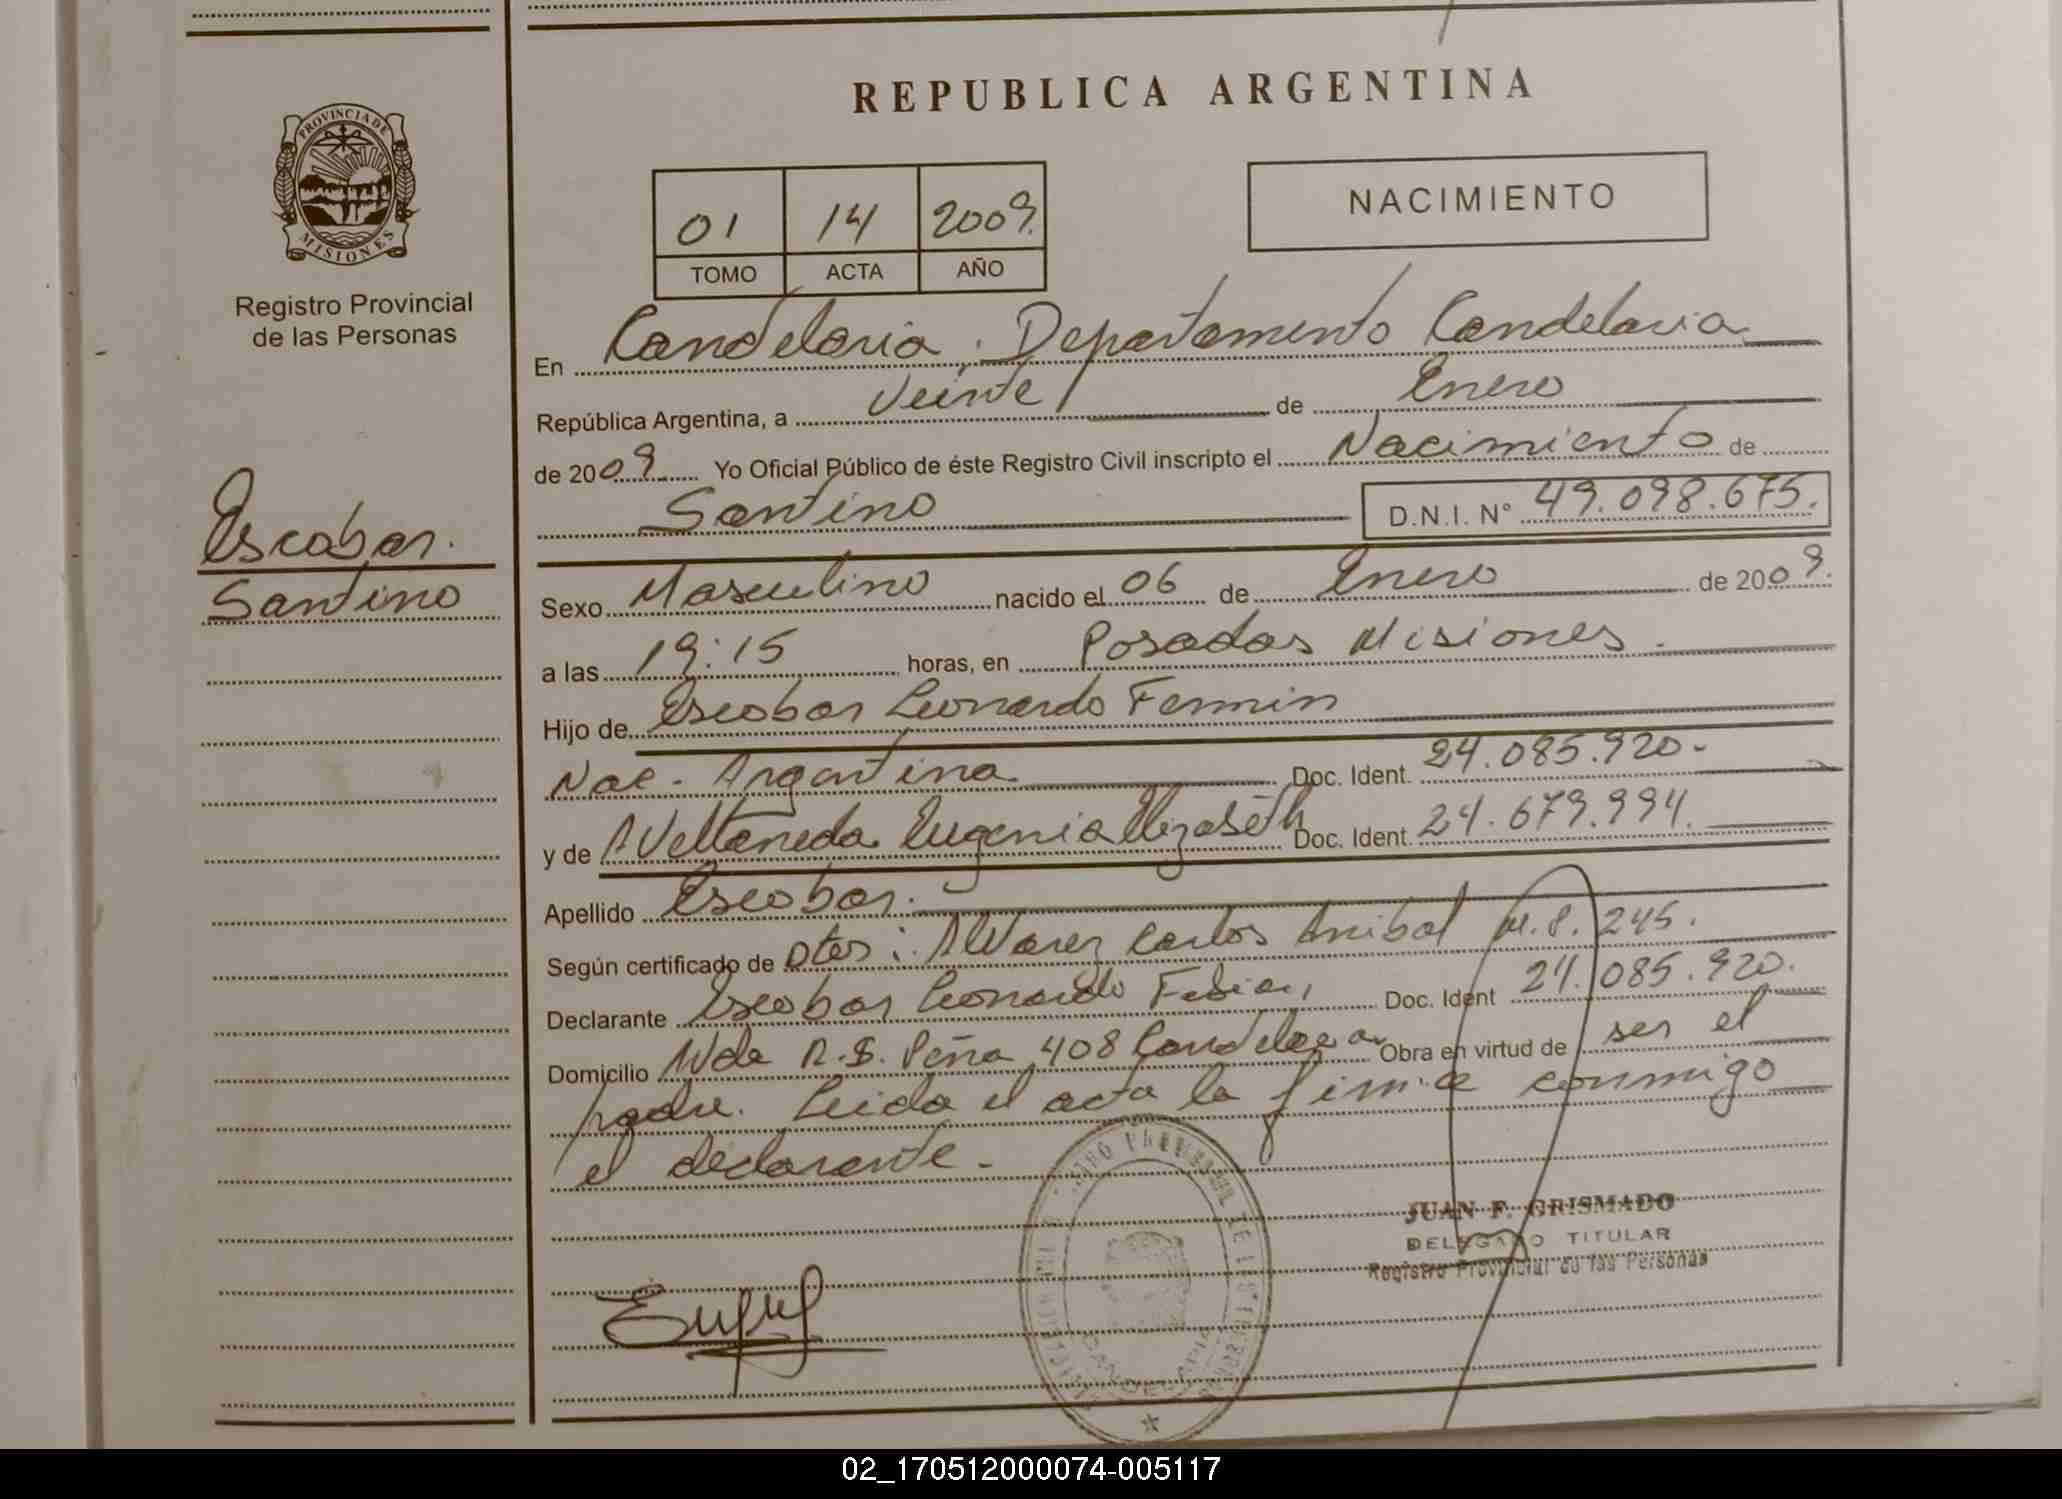 REPUBLICA ARGENTINA
PROVINCIA DE
MISIONES
Registro Provincial
de las Personas
01 14 2009.
TOMO ACTA AÑO
NACIMIENTO
Escobar.
Santino
En Candelaria. Departamento Candelaria
República Argentina, a Veinte de Enero
de 2009 Yo Oficial Público de éste Registro Civil inscripto el Nacimiento de
Santino D.N.I. N° 49.098.675.
Sexo Masculino nacido el 06 de Enero de 2009.
a las 19:15 horas, en Posadas Misiones.
Hijo de Escobar Leonardo Fermin
Nac. Argentina Doc. Ident. 24.085.920.
y de Avellaneda Eugenia Elizabeth Doc. Ident. 24.679.994.
Apellido Escobar.
Según certificado de Dtor: Alvarez Carlos Anibal M.P. 245.
Declarante Escobar Leonardo Doc. Ident 24.085.920.
Domicilio Avda R.S. Peña 408 Candelaria Obra en virtud de ser el
padre. Leida el acta la firma conmigo
el declarante.
JUAN F. GRISMADO
DELEGADO TITULAR
Registro Provincial de las Personas
CANDELARIA
02_170512000074-005117